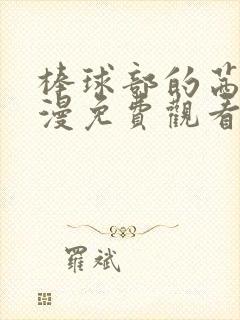 棒球部的茜
漫免費觀看
羅斌